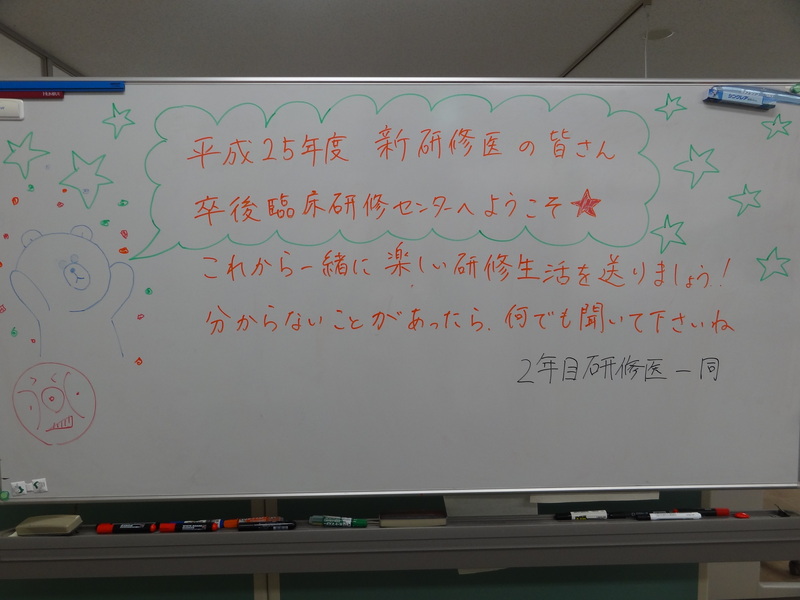 平成25年度 新研修医の皆さん
卒後臨床研修センターへようこそ★
これから一緒に楽しい研修生活を送りましょう!
分からないことがあったら、何でも聞いて下さいね
2年目研修医一同